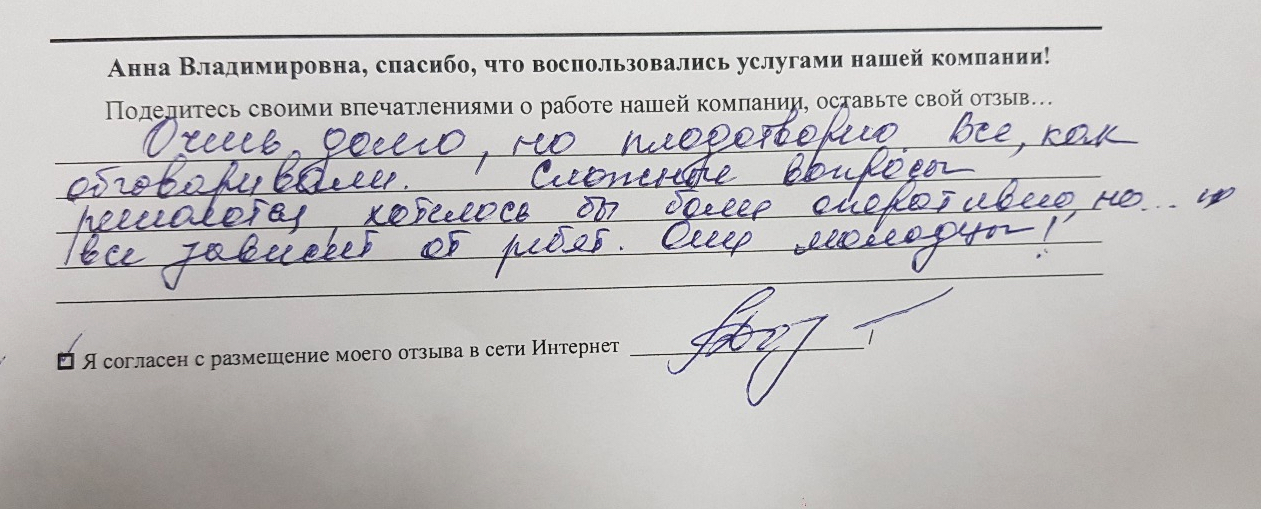 Анна Владимировна, спасибо, что воспользовались услугами нашей компании!
Поделитесь своими впечатлениями о работе нашей компании, оставьте свой отзыв...
Очень долго, но плодотворно. Все, как
обговаривали. Сложные вопросы
решаются, хотелось бы более оперативно, но...
все зависит от ребят. Они молодцы!
Я согласен с размещение моего отзыва в сети Интернет